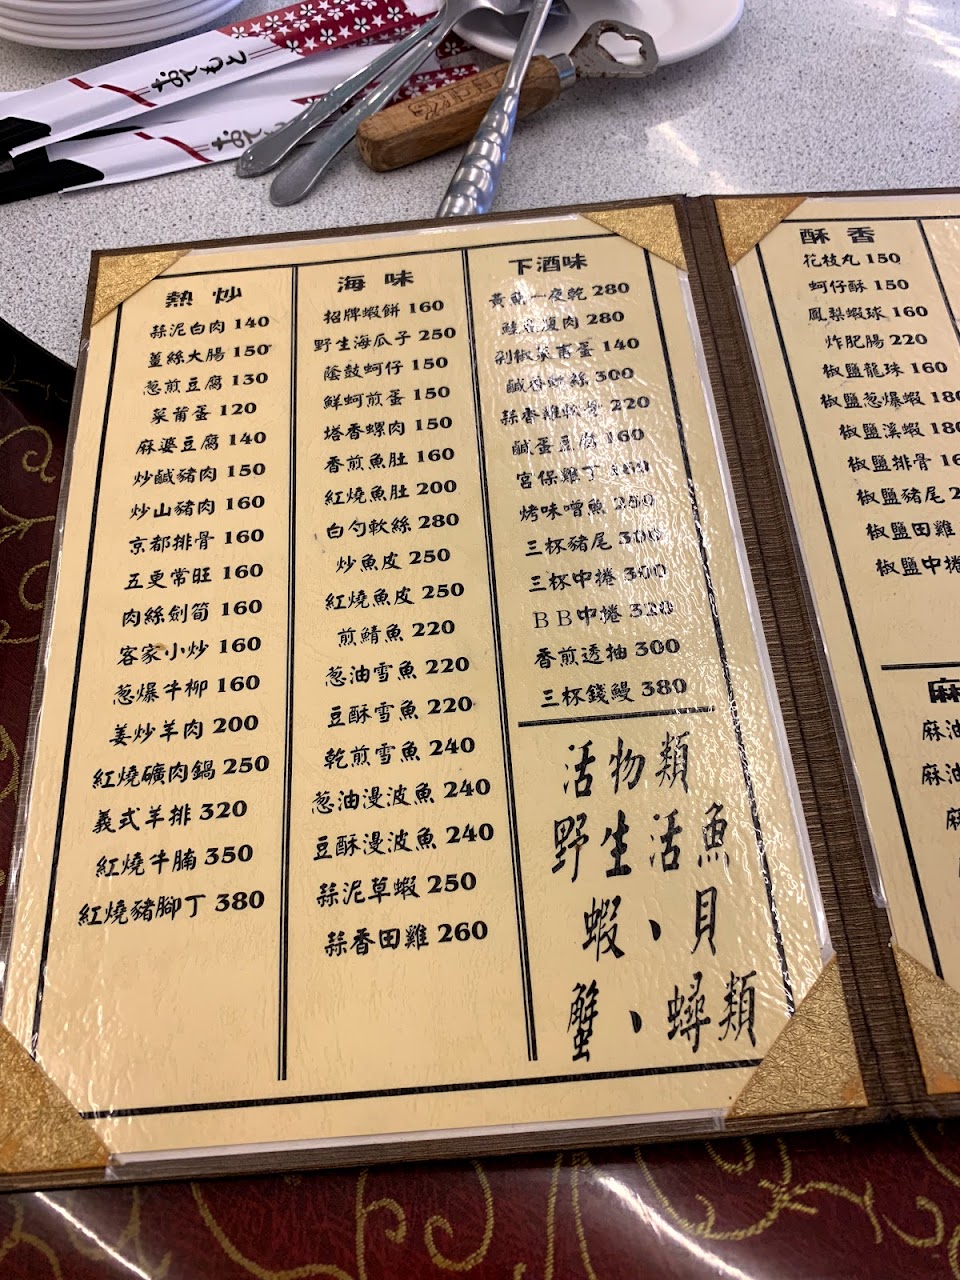 熱炒
蒜泥白肉 140
薑絲大腸 150
葱煎豆腐 130
菜莆蛋 120
麻婆豆腐 140
炒鹹豬肉 150
炒山豬肉 160
京都排骨 160
五更常旺 160
肉絲劍筍 160
客家小炒 160
葱爆牛柳 160
姜炒羊肉 200
紅燒礦肉鍋 250
義式羊排 320
紅燒牛腩 350
紅燒豬腳丁 380
海味
招牌蝦餅 160
野生海瓜子 250
蔭鼓蚵仔 150
鮮蚵煎蛋 150
塔香螺肉 150
香煎魚肚 160
紅燒魚肚 200
白勺軟絲 280
炒魚皮 250
紅燒魚皮 250
煎鯖魚 220
葱油雪魚 220
豆酥雪魚 220
乾煎雪魚 240
葱油漫波魚 240
豆酥漫波魚 240
蒜泥草蝦 250
蒜香田雞 260
下酒味
黃魚一夜乾 280
腹肉 280
剁椒菜莆蛋 140
鹹香 300
蒜香雞軟骨 220
鹹蛋豆腐 160
宮保雞丁
烤味噌魚 250
三杯豬尾 300
三杯中捲 300
BB中捲 320
香煎透抽 300
三杯錢鰻 380
活物類
野生活魚
蝦、貝
蟹、蟳類
酥香
花枝丸 150
蚵仔酥 150
鳳梨蝦球 160
炸肥腸 220
椒鹽龍珠 160
椒鹽葱爆蝦 180
椒鹽溪蝦 180
椒鹽排骨
椒鹽豬尾
椒鹽田雞
椒鹽中捲
麻
麻油
麻油
麻